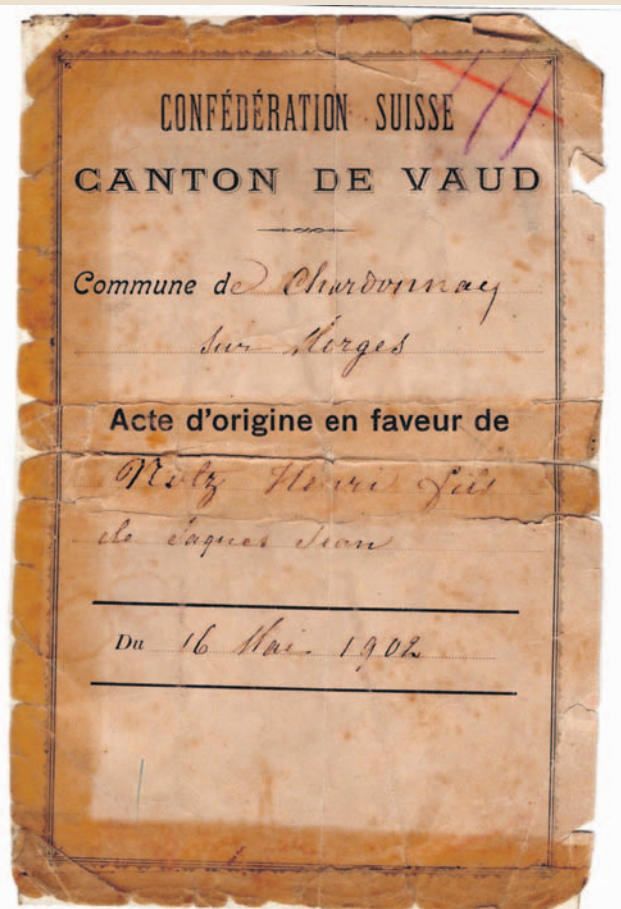 CONFÉDÉRATION SUISSE
CANTON DE VAUD
Commune de Chardonnay
sur Morges
Acte d'origine en faveur de
Henri fils
de Jaques Jean
Du 16 Mai 1902